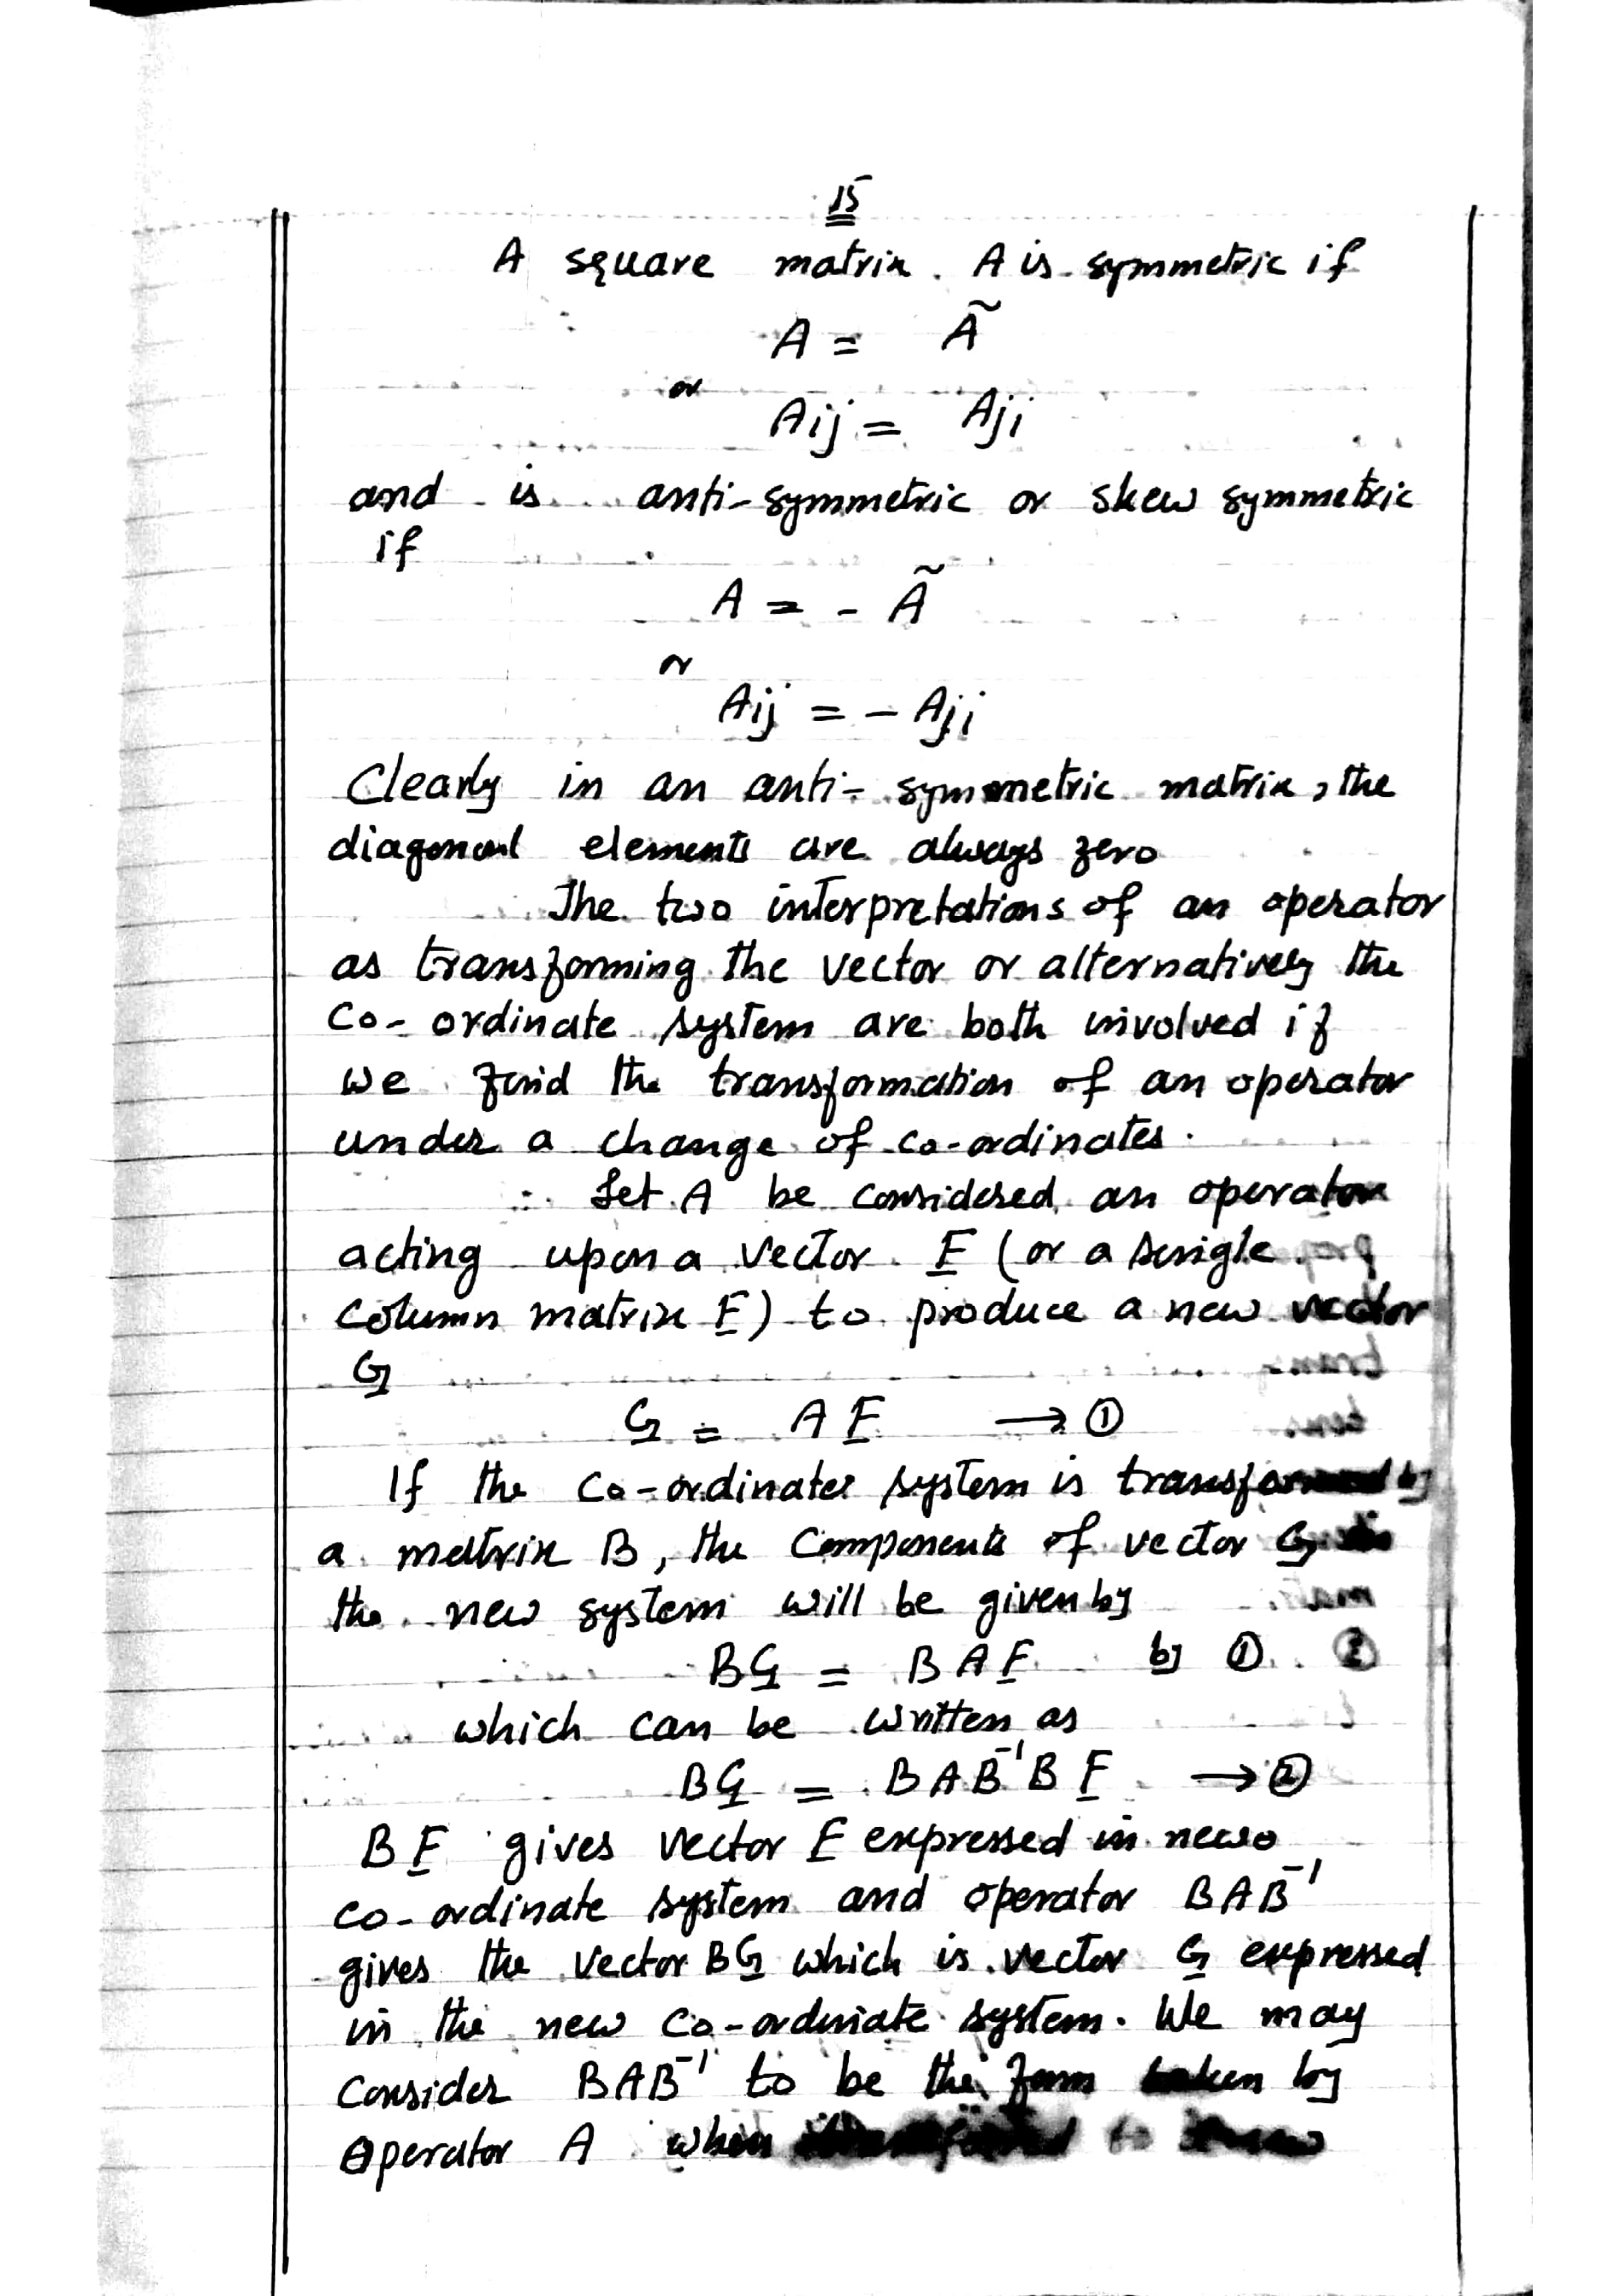 15
A square matrix. A is symmetric if
A = Ã
or
Aij = Aji
and is anti-symmetric or skew symmetric
if
A = - Ã
or
Aij = - Aji
Clearly in an anti-symmetric matrix, the
diagonal elements are always zero
The two interpretations of an operator
as transforming the vector or alternatively the
co-ordinate system are both involved if
we find the transformation of an operator
under a change of co-ordinates.
Let A be considered an operator
acting upon a vector F̲ (or a single
column matrix F̲) to produce a new vector
G̲
G̲ = A F̲ → ①
If the co-ordinates system is transformed by
a matrix B, the components of vector G̲ in
the new system will be given by
BG̲ = BAF̲ by ①
which can be written as
BG̲ = BAB⁻¹B F̲ → ②
B F̲ gives vector F̲ expressed in new
co-ordinate system and operator BAB⁻¹
gives the vector BG̲ which is vector G̲ expressed
in the new co-ordinate system. We may
consider BAB⁻¹ to be the form taken by
operator A when to